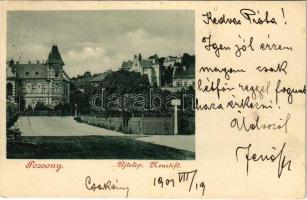 Kedves Próta!
Igen jól érzem
magam csak
hétfőn reggel fogunk
haza érkezni!
Üdvözöl
Jenő
Pozsony.
Ujtelep. Neustift.
Csákány 1901 VII/19